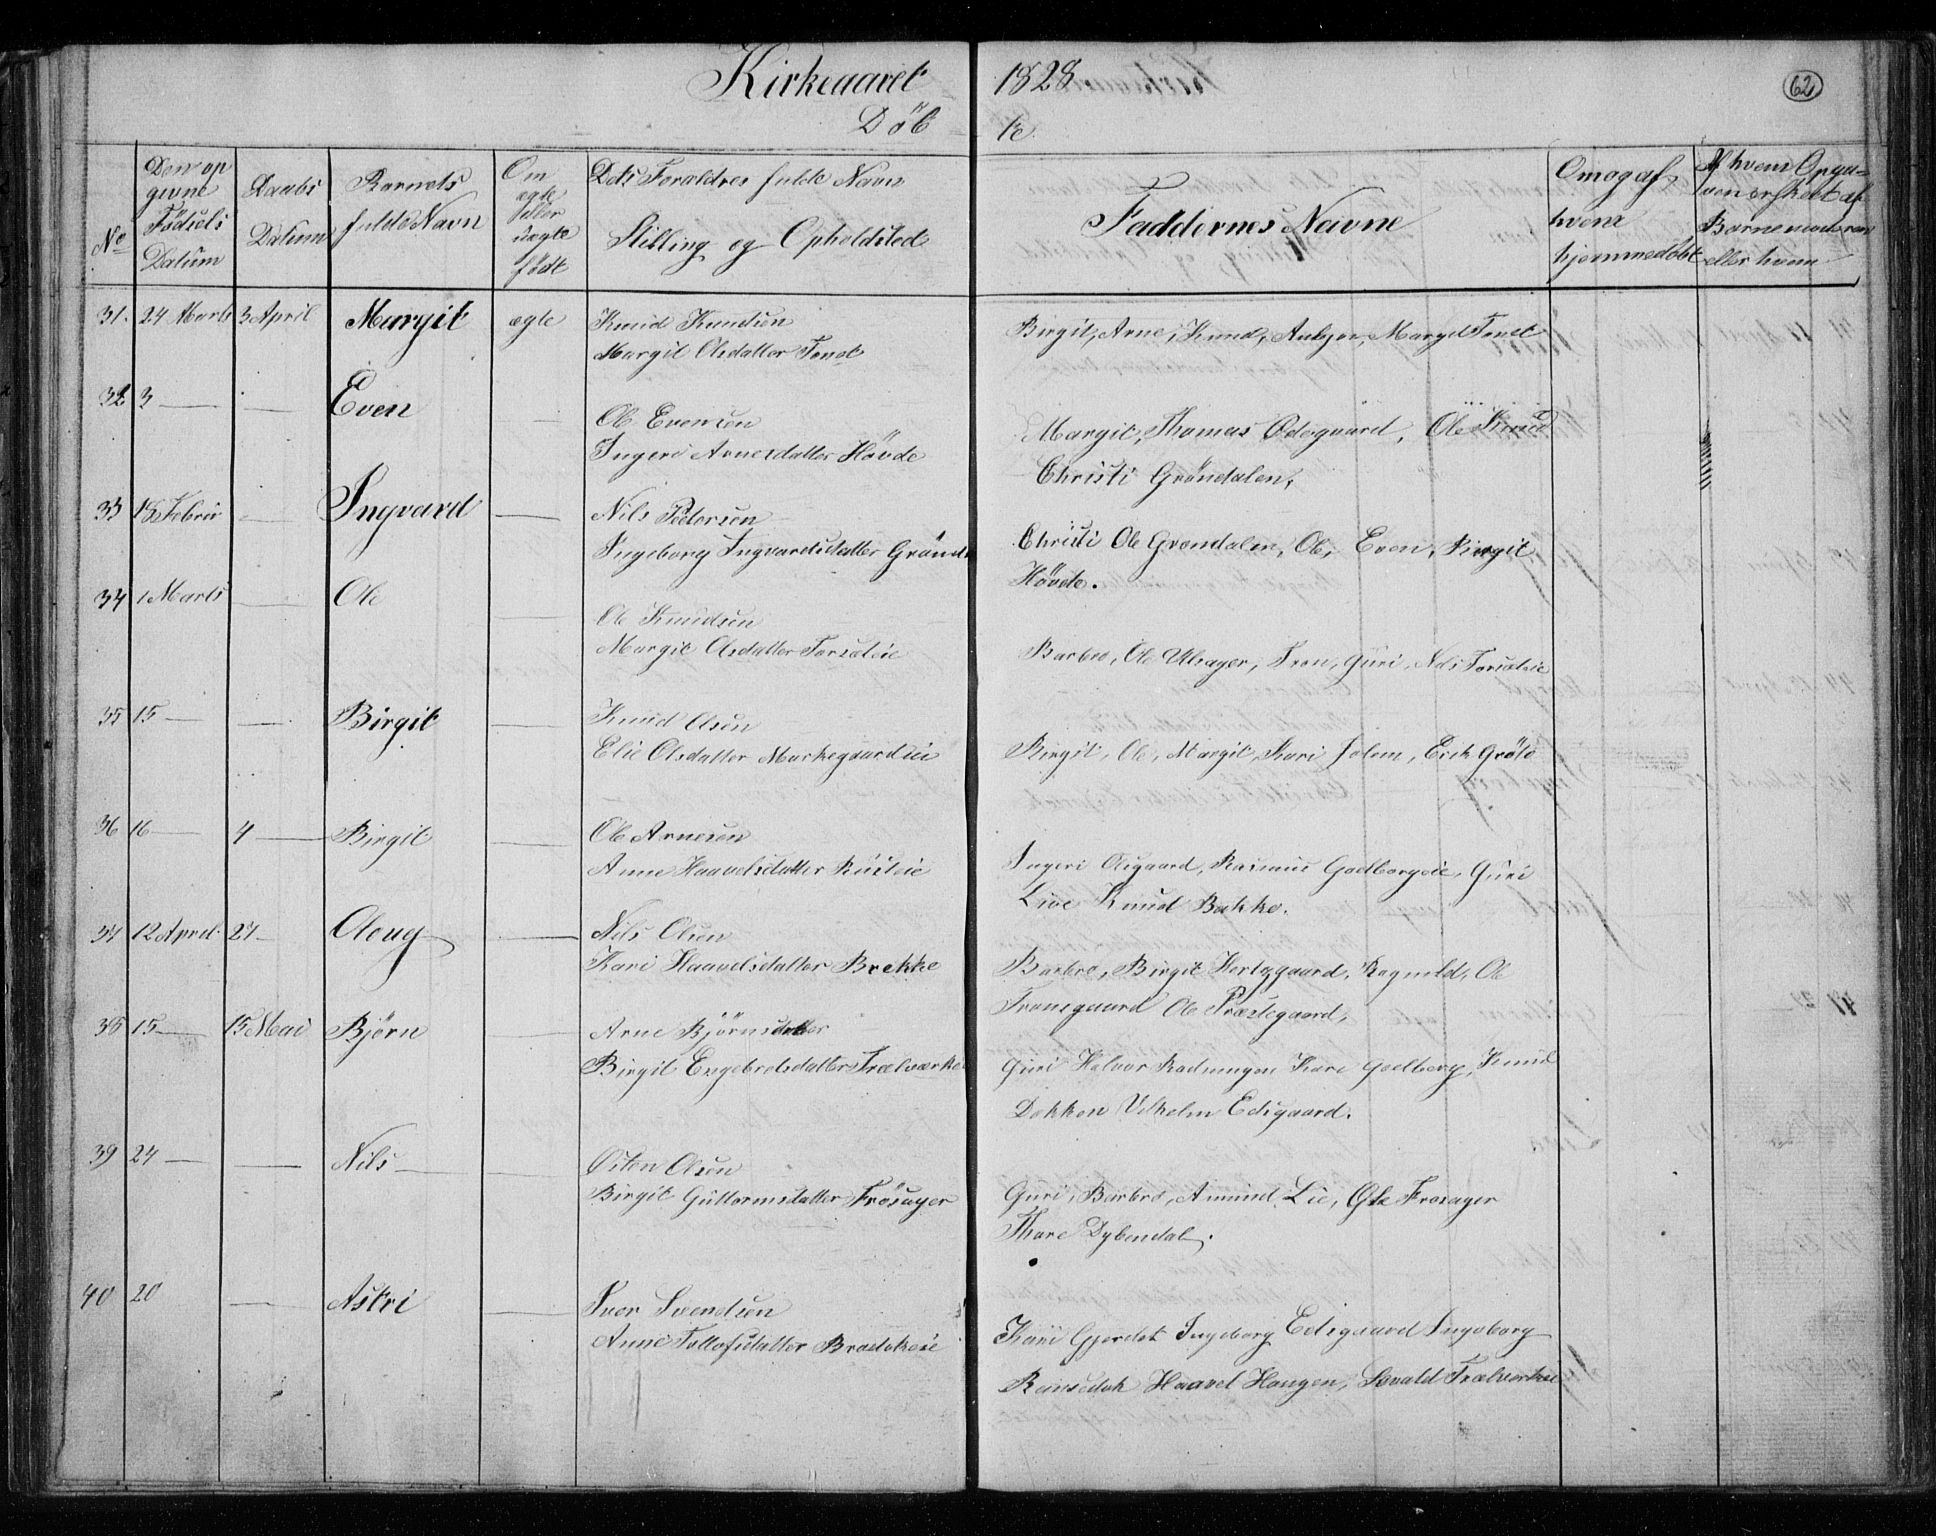 Kirkeaaret 1828
62
Döbte
No
Den op givne Födsels Datum
Daabs Datum
Barnets fulde Navn
Om ægte eller uægte födt
Dets Forældres fulde Navn
Stilling og Opholdsted
Faddernes Navne
Om og af hvem hjemmedöbt
Af hvem Opgaven er skeet af Barnemoderen eller hvem
31. 24 Marts 3 April Margit ægte Knud Knudsen
Margit Olsdatter Tonet
Birgit, Arne, Knud, Margit Tonet
32 3 — — Even — Ole Evensen
Ingeri Arnesdatter Hövde
Margit, Thomas Ödegaard, Ole Knud
Christi Gröndalen,
33 18 Februr — Ingvard — Nils Pedersen
Ingeborg Ingvardsdatter Grönd
Christi Ole Grøndalen, Ole, Even, Birgit
Hövde.
34 1 Marts — Ole — Ole Knudsen
Margit Olsdatter
Barbro, Ole Ulsager, Tron, Guri, Nils
35 15 — — Birgit — Knud Olsen
Elie Olsdatter Markegaardeie
Birgit, Ole, Margit, Kari Jolem, Erik Gröte
36 16 — 4 — Birgit — Ole Arnesen
Anne Haavelsdatter Rusteie
Ingeri Aigaard, Rasmus Goelborgeie, Guri
Lie Knud Bakke.
37 12 April. 27 — Oloug — Nils Olsen
Kari Haavelsdatter Brekke
Barbro, Birgit Hertzgaard, Ragnild, Ole
Tronsgaard Ole Præstegaard,
38 15 — 15 Mai Björn — Arne Björns
Birgit Engebretsdatter Trælværke
Guri Halvor Radningen Kari Goelberg, Knud
Dokken Vilhelm Edsgaard.
39 24 — — Nils — — Østen Olsen
Birgit Guttormsdatter Frösager
Guri, Barbro, Amund Lie, Ole Frosager
Thore Dybendal.
40 20 — Astri — Iver Svendsen
Anne Tollefsdatter
Kari Gjerdet Ingeborg Edsgaard Ingeborg
Haavel Haugen, Trælverkeie